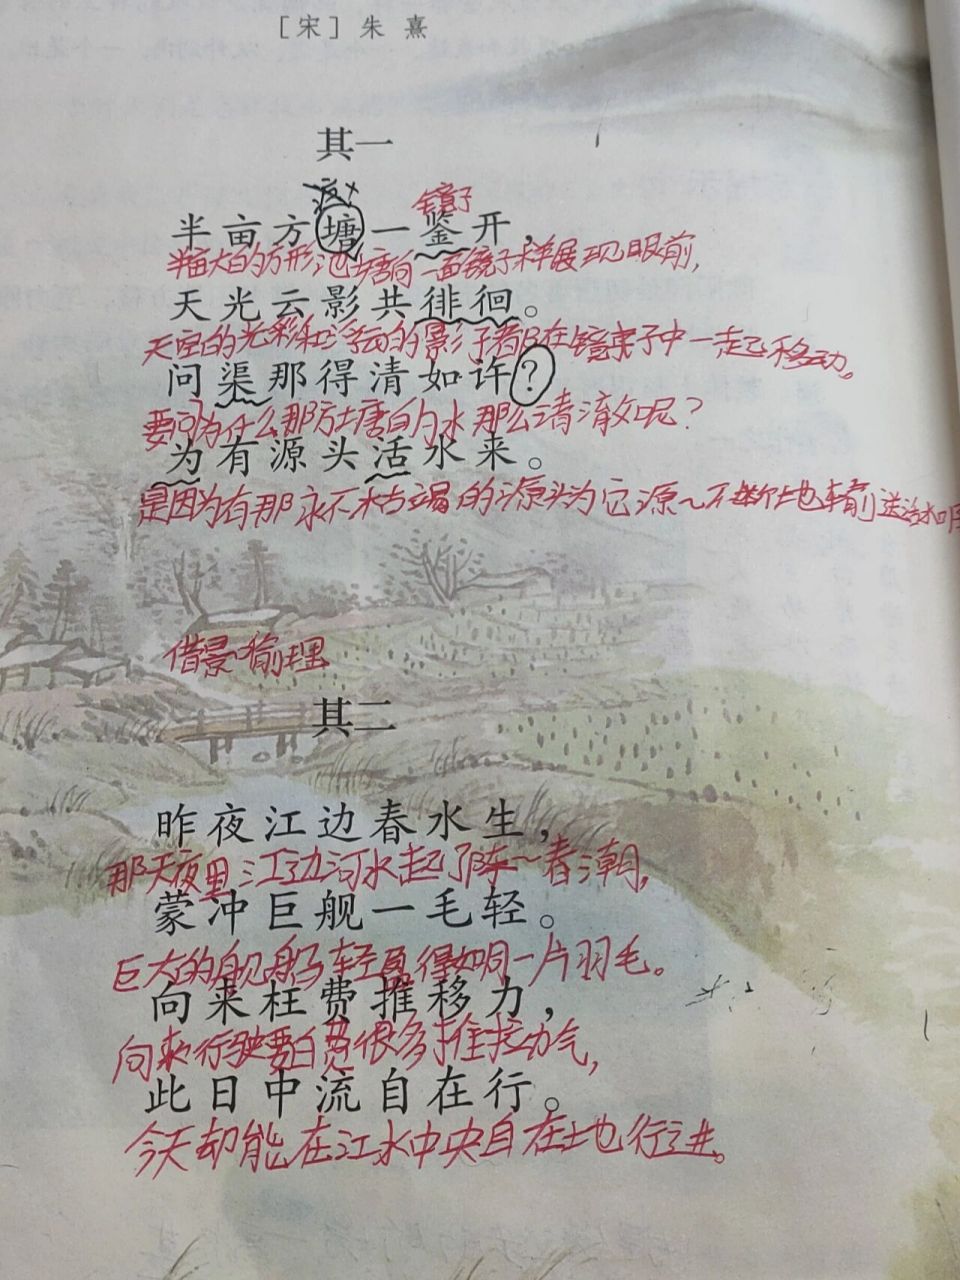 [宋]朱熹
其一
镜子
半亩方塘一鉴开，
半亩大的方形池塘向一面镜子来羊展现眼前，
天光云影共徘徊。
天空的光彩和浮云的影子都在镜子中一起移动。
问渠那得清如许？
要问为什么那方塘的水那么清澈呢？
为有源头活水来。
是因为有那永不枯竭的源头为它源~不断地车俞送活水啊
借景喻理
其二
昨夜江边春水生，
那天夜里江边河水起了阵~春潮，
蒙冲巨舰一毛轻。
巨大的舰船轻盈得如同一片羽毛。
向来枉费推移力，
向来行驶要白费很多推拉力气，
此日中流自在行。
今天却能在江水中央自在地行进。